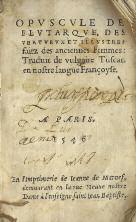 OPVSCVLE DE
PLVTARQVE, DES
VERTVEVX ET ILLVSTRES
faictz des anciennes Femmes:
Traduit de vulgaire Tuscan
en nostre langue Françoyse.
A PARIS.
En l'imprimerie de Jeanne de Marnef,
demourant en la rue Neuve nostre
Dame à l'enseigne sainct Jean Baptiste.